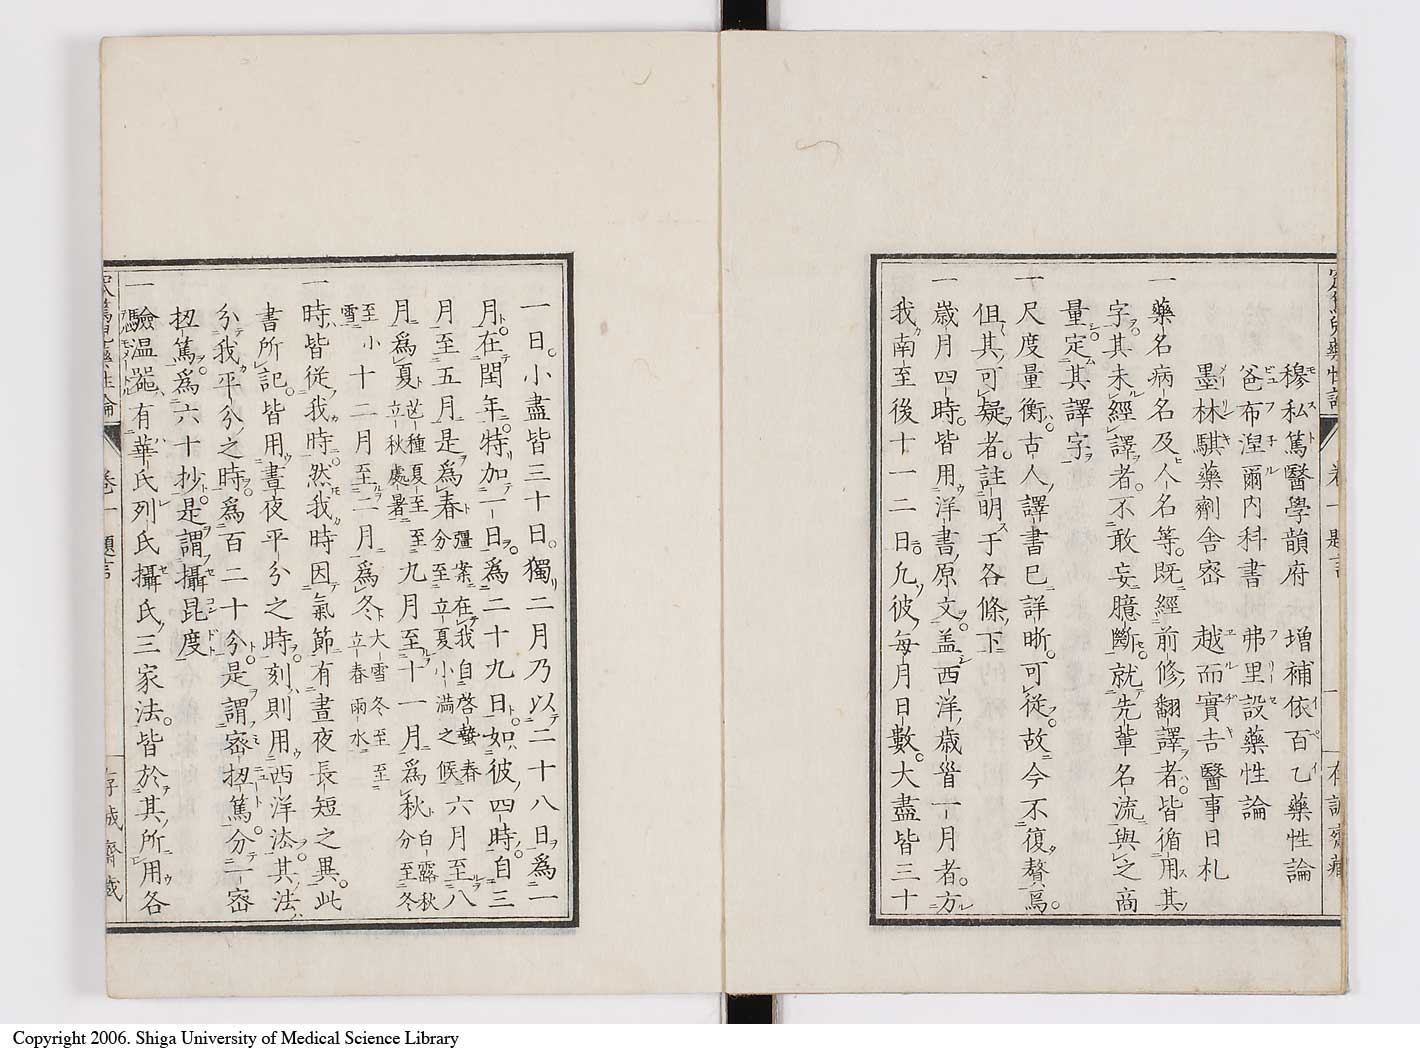 穆私篤醫學韻府　增補依百乙藥性論
爸布涅爾内科書　弗里設藥性論
墨林騏藥劑舎密　越而實吉醫事日札
一藥名病名及人名等。既經前修翻譯者。皆循用其
字。其未經譯者。不敢妄臆斷。就先輩名流與之商
量。定其譯字
一尺度量衡。古人譯書已詳晰。可從。故今不復贅焉。
但其可疑者。註明于各條下
一歳月四時。皆用洋書原文。盖西洋歳首一月者。方
我南至後十一二日。凡彼每月日數。大盡皆三十
一日。小盡皆三十日。獨二月乃以二十八日爲一
月。在閏年。特加一日。爲二十九日。如彼四時。自三
月至五月。是爲春彊案在我自啓蟄春分至立夏小滿之候六月至八
月爲夏芒種夏至至立秋處暑九月至十一月爲秋白露秋分至冬
至小雪十二月至二月爲冬大雪冬至至立春雨水
一時皆從我時。然我時因氣節有晝夜長短之異。此
書所記。皆用晝夜平分之時。刻則用西洋法。其法
分我平分之時。爲百二十分。是謂密扭篤。分一密
扭篤。爲六十抄。是謂攝昆度
一驗温噐。有華氏列氏攝氏三家法。皆於其所用各